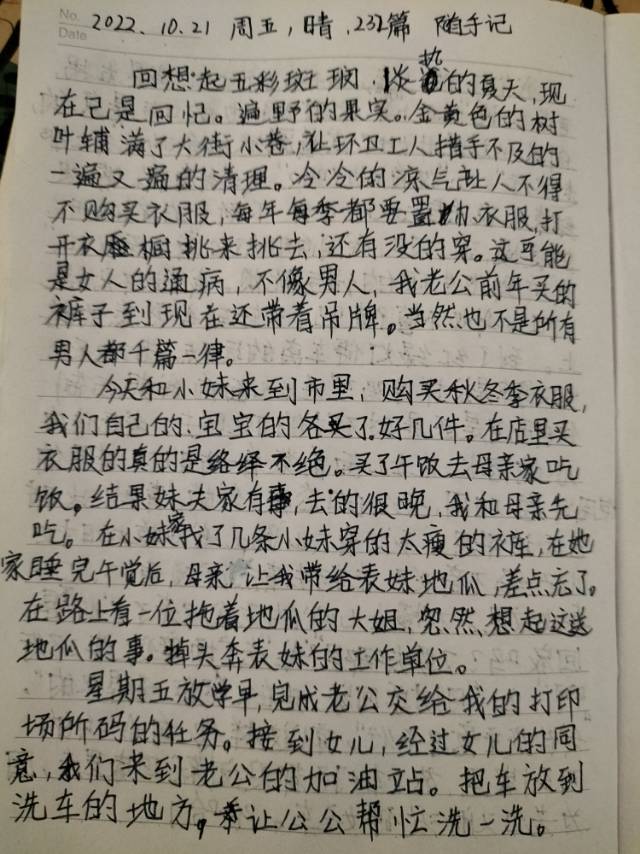 No.
Date
2022.10.21 周五,晴.232篇 随手记
回想起五彩斑斓.炎热的夏天,现
在已是回忆。遍野的果实。金黄色的树
叶铺满了大街小巷,让环卫工人措手不及的
一遍又一遍的清理。冷冷的凉气让人不得
不购买衣服,每年每季都要置办衣服,打
开衣橱挑来挑去,还有没的穿。这可能
是女人的通病,不像男人,我老公前年买的
裤子到现在还带着吊牌。当然也不是所有
男人都千篇一律。
今天和小妹来到市里,购买秋冬季衣服,
我们自己的、宝宝的各买了好几件。在店里买
衣服的真的是络绎不绝。买了午饭去母亲家吃
饭。结果妹夫家有事,去的很晚,我和母亲先
吃。在小妹家找了几条小妹穿的太瘦的裤,在她
家睡完午觉后,母亲让我带给表妹地瓜,差点忘了。
在路上看一位抱着地瓜的大姐,忽然想起这送
地瓜的事。掉头奔表妹的工作单位。
星期五放学早,完成老公交给我的打印
场所码的任务。接到女儿,经过女儿的同
意,我们来到老公的加油站。把车放到
洗车的地方。让公公帮忙洗一洗。